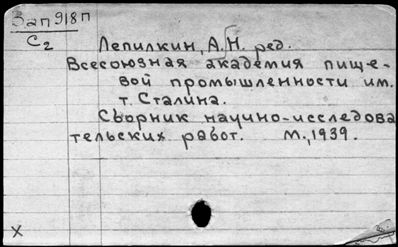 Зап 918п
С2
Лепилкин, А.Н. ред.
Всесоюзная академия пище-
вой промышленности им.
т. Сталина.
Сборник научно-исследова
тельских работ. М., 1939.
X